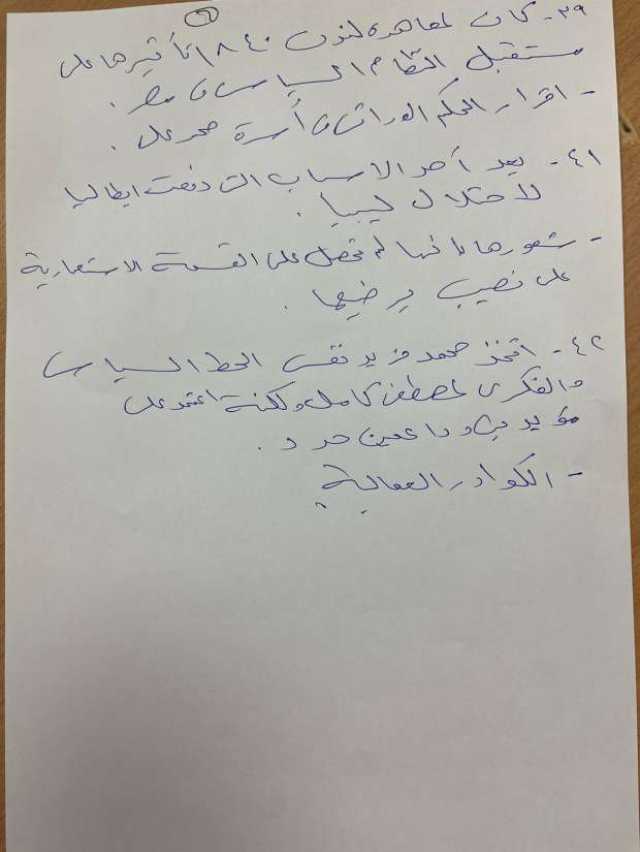 ٦
٣٩- كان لمعاهدة لندن ١٨٤٠ تأثيرها على
مستقبل النظام السياسى فى مصر .
- اقرار الحكم الوراثى فى أسرة محمد على .
٤١- يعد أحد الاسباب التى دفعت ايطاليا
لاحتلال ليبيا .
- شعورها بانها لم تحصل على القسمة الاستعمارية
على نصيب يرضيها .
٤٢- اتخذ محمد فريد نفس الخط السياسى
والفكرى لمصطفى كامل ولكنه اعتمد على
مؤيدين وداعمين جدد .
- الكوادر العمالية